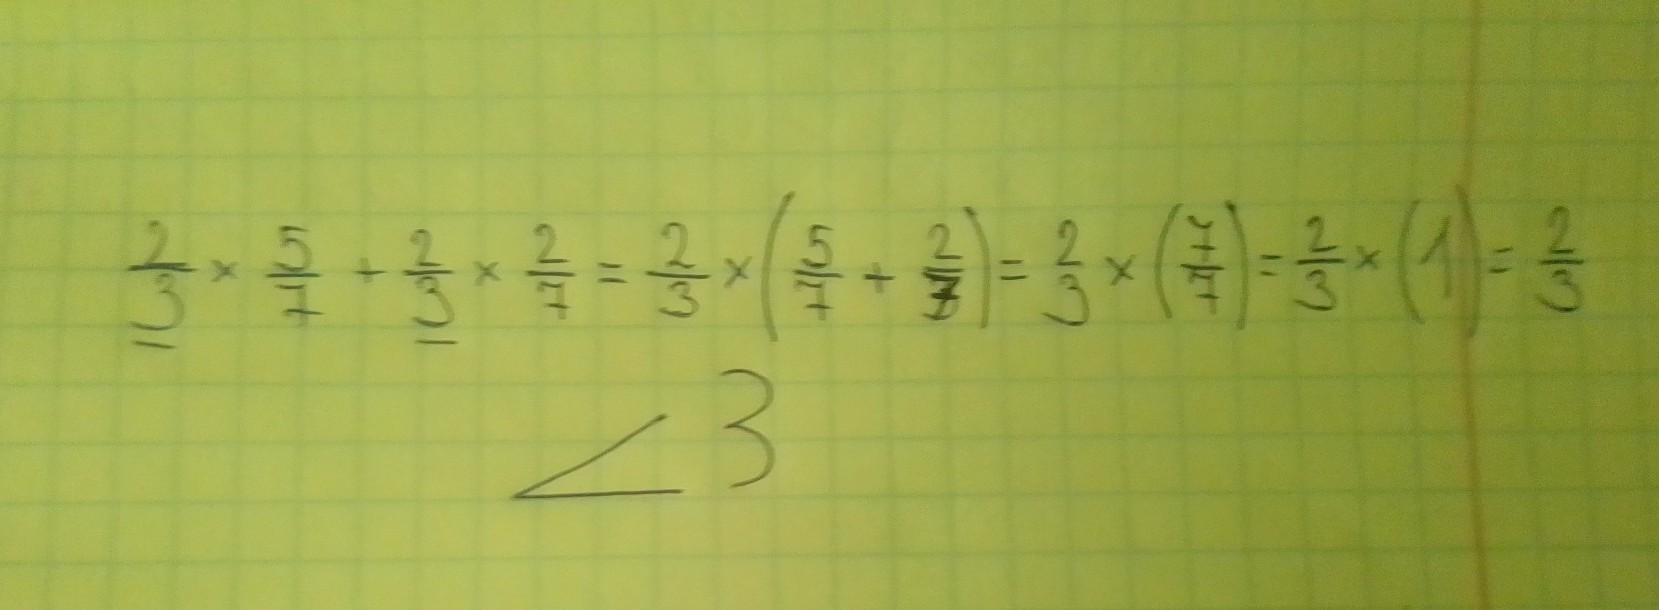 2/3 × 5/7 + 2/3 × 2/7 = 2/3 × (5/7 + 2/7) = 2/3 × (7/7) = 2/3 × (1) = 2/3
∠3